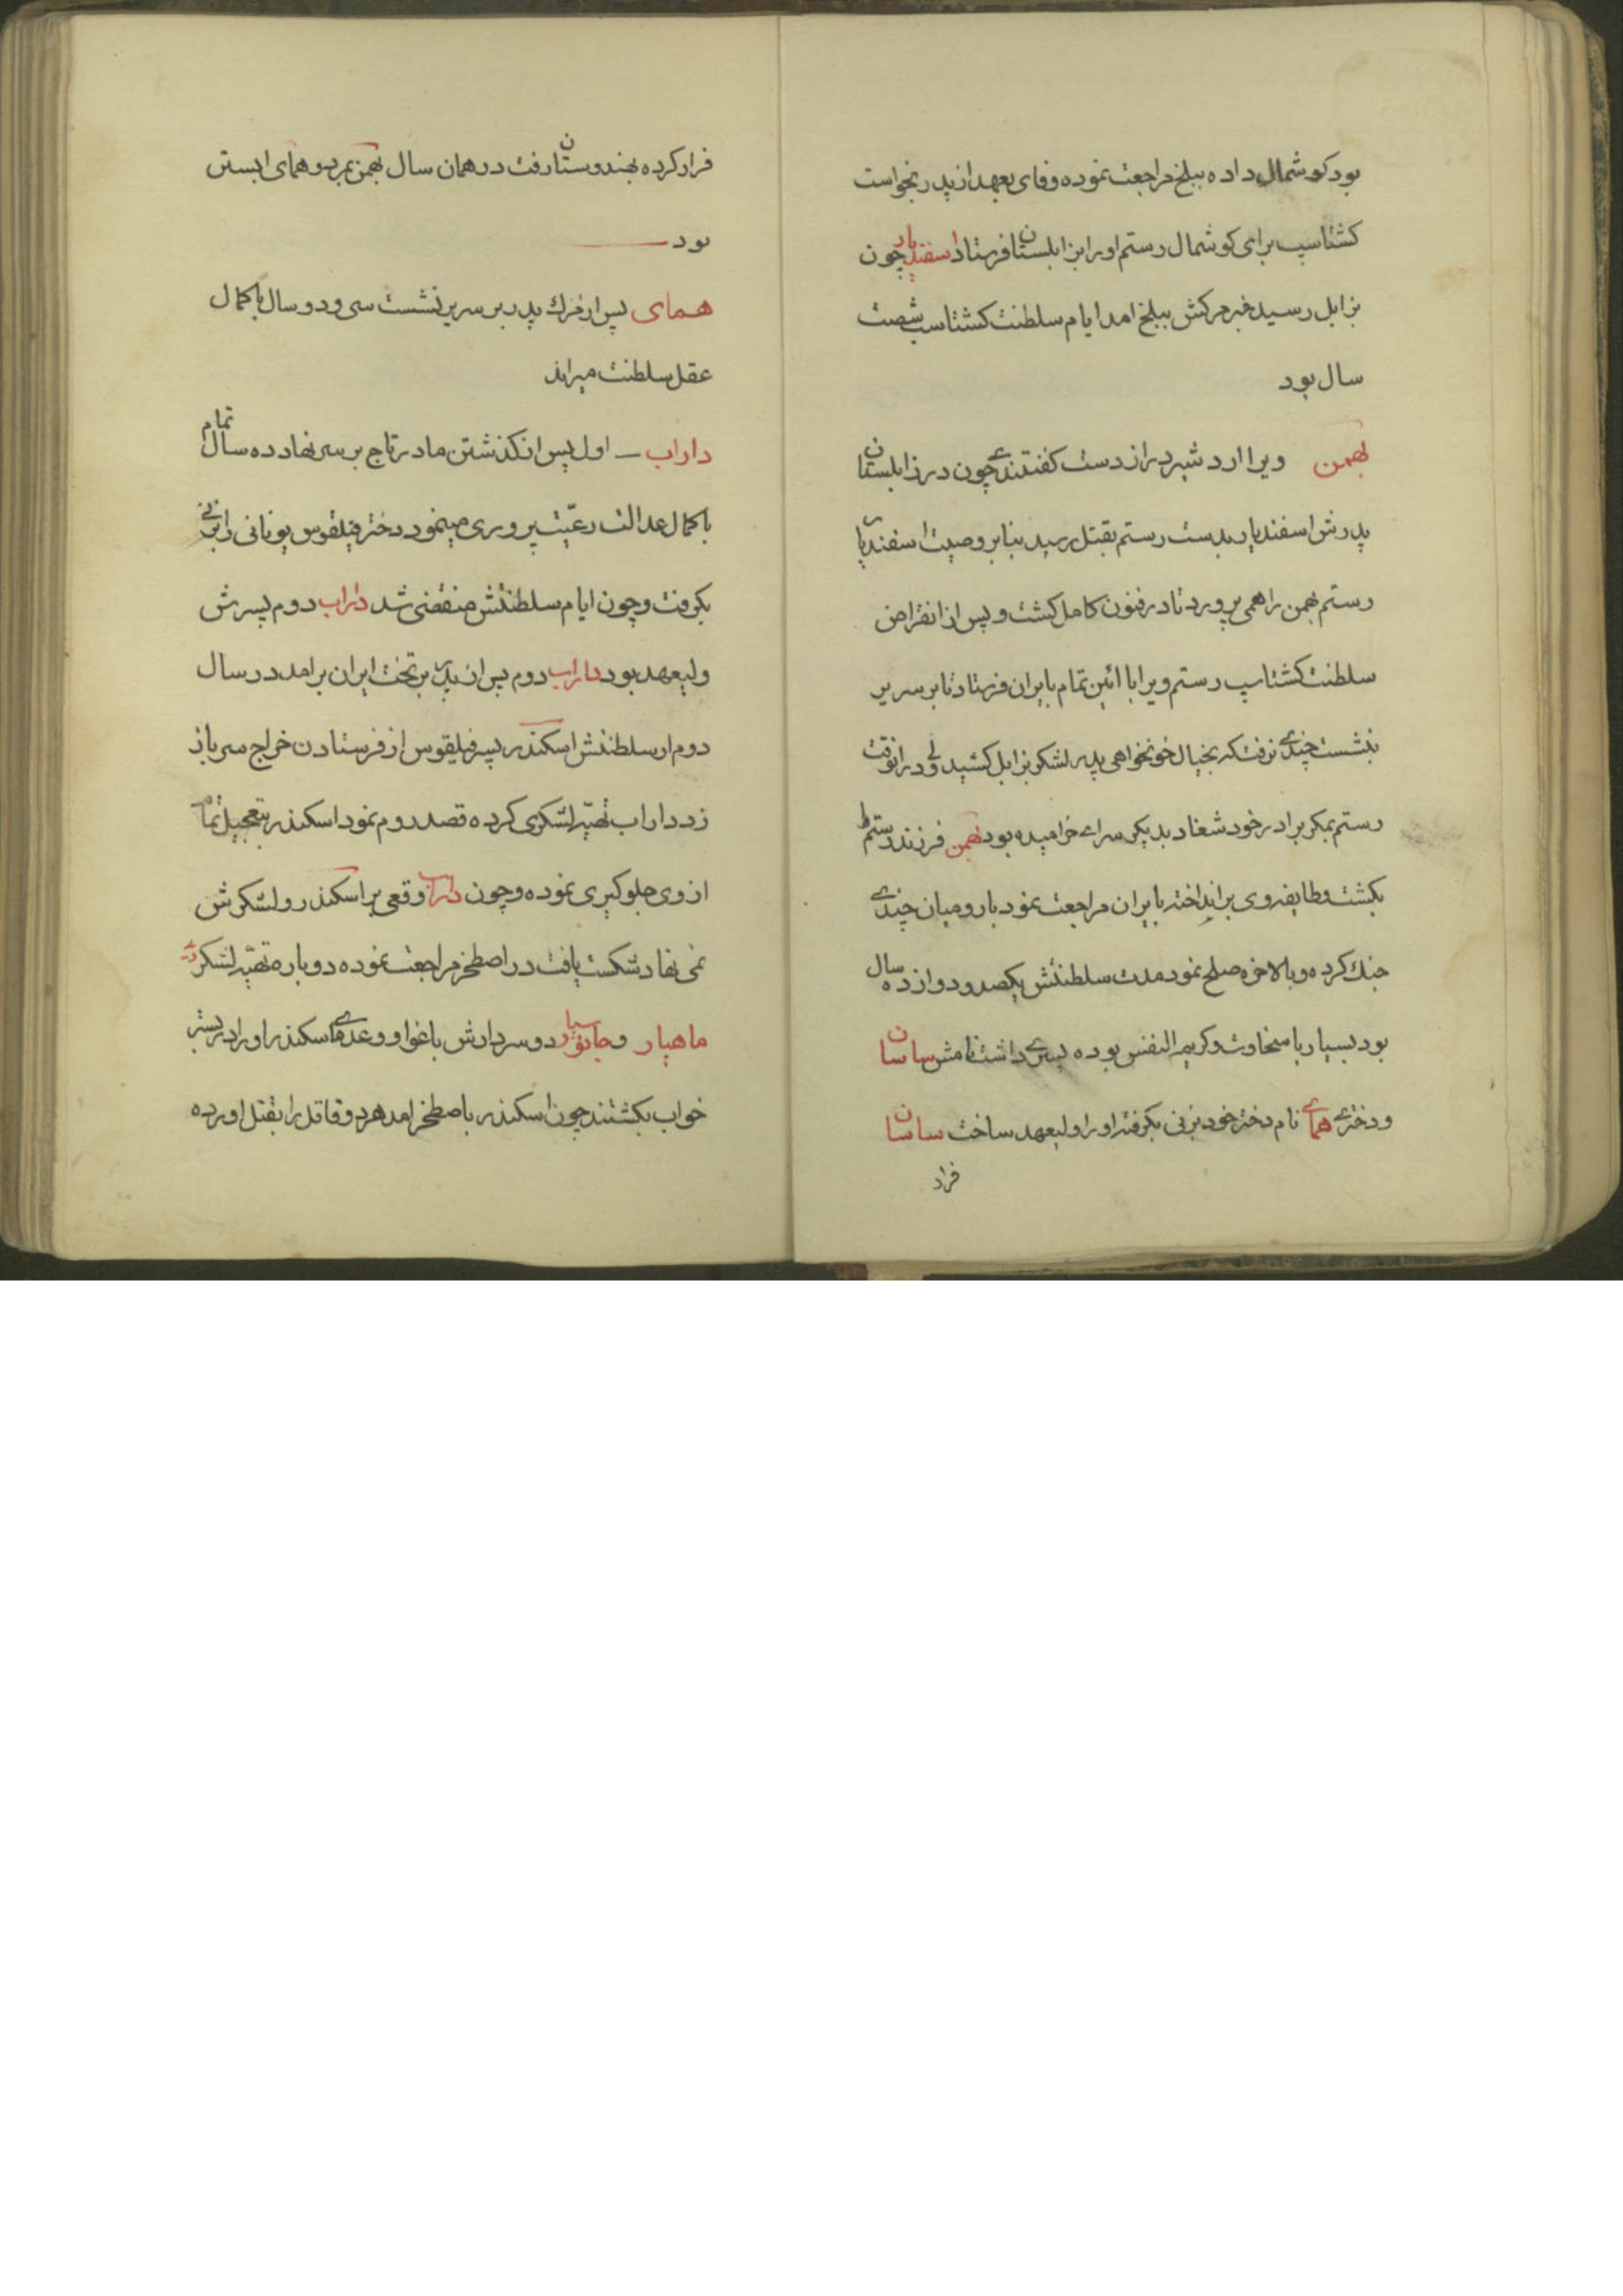 بود کوشمال داده ببلخ مراجعت نموده وفای بعهد از پدر بخواست
کشتاسب برای کوشمال رستم اورا بزابلستان فرستاد اسفندیار چون
بزابل رسید خبر مرکش ببلخ امد ایام سلطنت کشتاسب شصت
سال بود
بهمن ویرا اردشیر دراز دست کفتندی چون در زابلستان
پدرش اسفندیار بدست رستم بقتل رسید بنابر وصیت اسفندیار
رستم بهمن را همی پرورد تا در فنون کامل کشت و پس از انقراض
سلطنت کشتاسب رستم ویرا با ائین تمام بایران فرستاد تا بر سریر
بنشست چندی نرفت که بخیال خونخواهی پدر لشکر بزابل کشید ولی در انوقت
رستم بمکر برادر خود شغاد بدیکر سرای خرامیده بود بهمن فرزند رستم را
بکشت و طایفه وی برانداخته بایران مراجعت نمود با رومیان چندی
جنك کرده و بالاخره صلح نمود مدت سلطنتش یکصد و دوازده سال
بود بسیار با سخاوت و کریم النفس بوده پسری داشت نامش ساسان
و دختری همای نام دختر خود بزنی بکرفته اورا ولیعهد ساخت ساسان
فرار
فرار کرده بهندوستان رفت در همان سال بهمن بمرد و همای ابستن
بود
همای پس از مرك پدر بر سریر نشست سی و دو سال باکمال
عقل سلطنت میراند
داراب اول پس از کذشتن مادر تاج بر سر نهاد ده سال تمام
باکمال عدالت رعیّت پروری مینمود دختر فیلقوس یونانی را بزنی
بکرفت و چون ایام سلطنتش منقضی شد داراب دوم پسرش
ولیعهد بود داراب دوم پس از پدر بر تخت ایران برامد در سال
دوم از سلطنتش اسکندر پسر فیلقوس از فرستادن خراج سر باز
زد داراب تهیّه لشکری کرده قصد روم نمود اسکندر بتعجیل تمام
از وی جلوکیری نموده و چون داراب وقعی بر اسکندر و لشکرش
نمی نهاد شکست یافت در اصطخر مراجعت نموده دوباره تهیّه لشکر
ماهیار و جانوسیار دو سردارش باغوا و وعدهای اسکندر اورا در بستر
خواب بکشتند چون اسکندر باصطخر امد هر دو قاتل را بقتل اورده